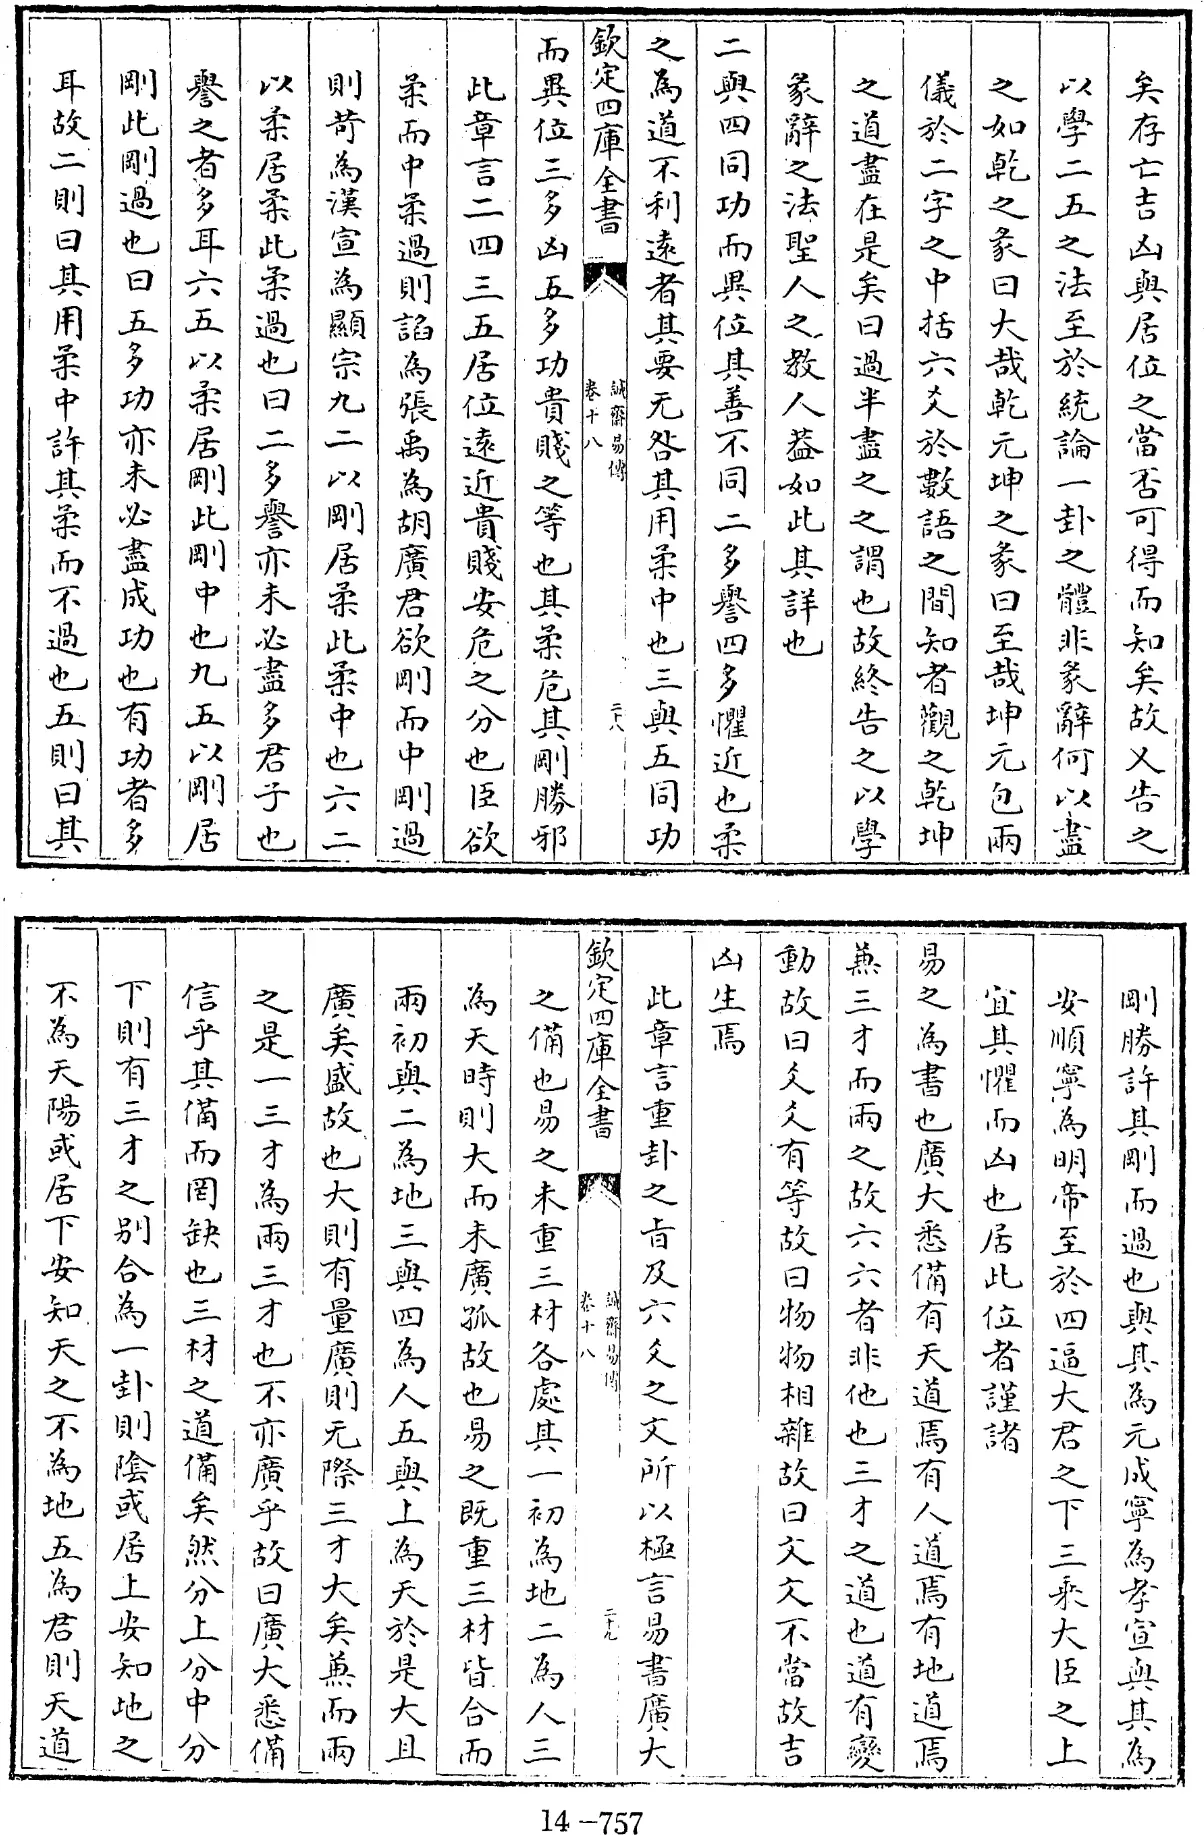 矣存亡吉凶與居位之當否可得而知矣故又告之
以學二五之法至於統論一卦之體非彖辭何以盡
之如乾之彖曰大哉乾元坤之彖曰至哉坤元包兩
儀於二字之中括六爻於數語之間知者觀之乾坤
之道盡在是矣曰過半盡之之謂也故終告之以學
彖辭之法聖人之教人葢如此其詳也
二與四同功而異位其善不同二多譽四多懼近也柔
之為道不利遠者其要无咎其用柔中也三與五同功
欽定四庫全書
誠齋易傳
卷十八
二十八
而異位三多凶五多功貴賤之等也其柔危其剛勝邪
此章言二四三五居位遠近貴賤安危之分也臣欲
柔而中柔過則諂為張禹為胡廣君欲剛而中剛過
則苛為漢宣為顯宗九二以剛居柔此柔中也六二
以柔居柔此柔過也曰二多譽亦未必盡多君子也
譽之者多耳六五以柔居剛此剛中也九五以剛居
剛此剛過也曰五多功亦未必盡成功也有功者多
耳故二則曰其用柔中許其柔而不過也五則曰其
剛勝許其剛而過也與其為元成寧為孝宣與其為
安順寧為明帝至於四逼大君之下三乘大臣之上
宜其懼而凶也居此位者謹諸
易之為書也廣大悉備有天道焉有人道焉有地道焉
兼三才而兩之故六六者非他也三才之道也道有變
動故曰爻爻有等故曰物物相雜故曰文文不當故吉
凶生焉
此章言重卦之旨及六爻之文所以極言易書廣大
欽定四庫全書
誠齋易傳
卷十八
二十九
之備也易之未重三材各處其一初為地二為人三
為天時則大而未廣孤故也易之既重三材皆合而
兩初與二為地三與四為人五與上為天於是大且
廣矣盛故也大則有量廣則无際三才大矣兼而兩
之是一三才為兩三才也不亦廣乎故曰廣大悉備
信乎其備而罔缺也三材之道備矣然分上分中分
下則有三才之別合為一卦則陰或居上安知地之
不為天陽或居下安知天之不為地五為君則天道
14-757